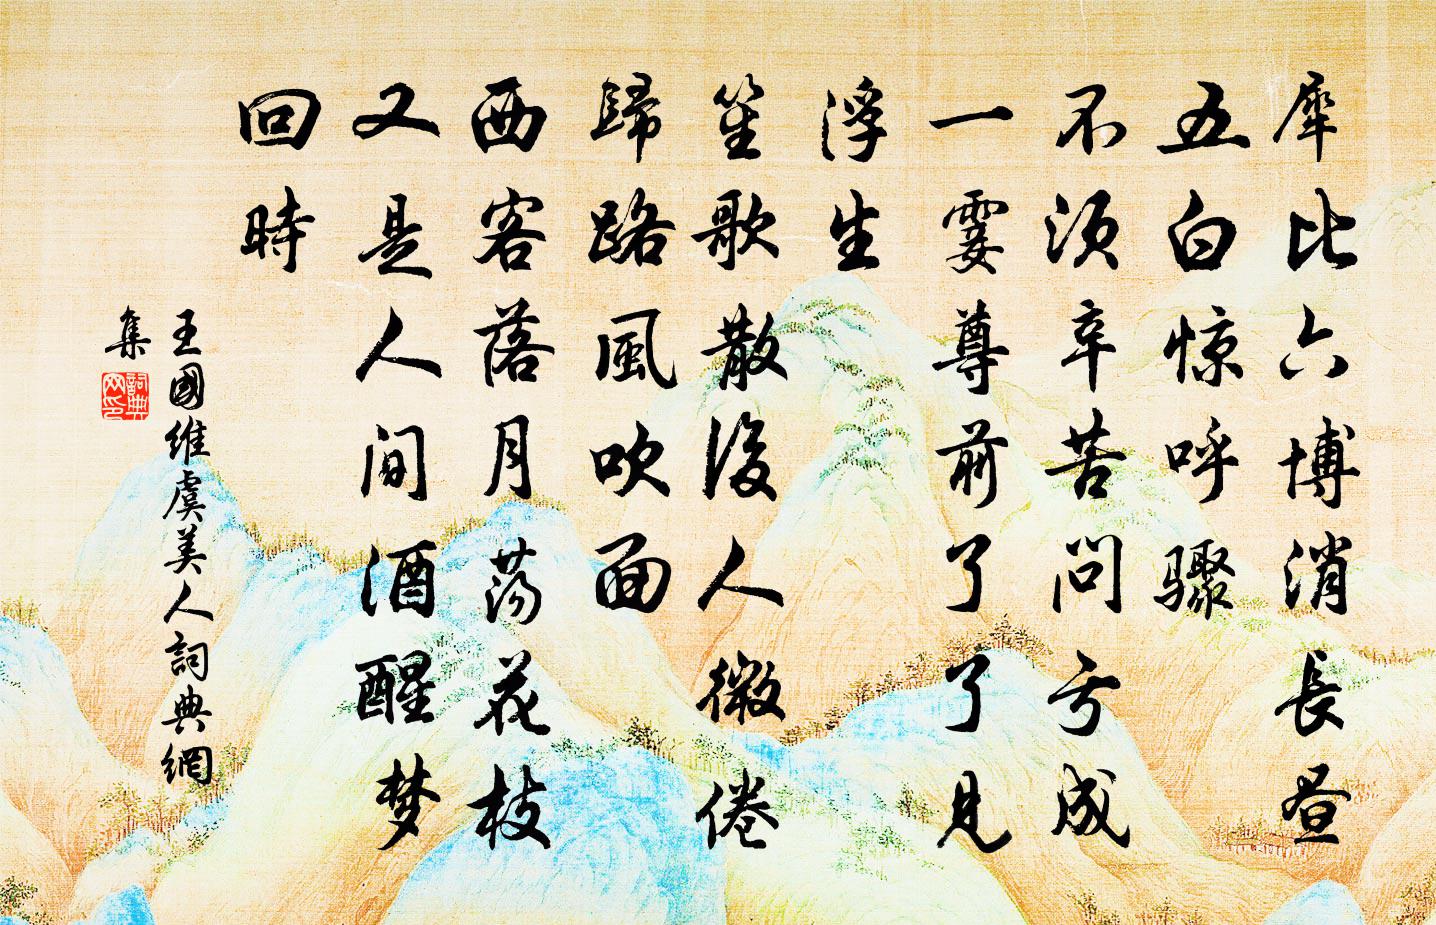 犀比六博消長昼
五白惊呼驟
不須辛苦問亏成
一霎尊前了了見
浮生
笙歌散後人微倦
歸路風吹面
西客落月荡花枝
又是人間酒醒梦
回時
王國維虞美人詞典網
集
詞典網印